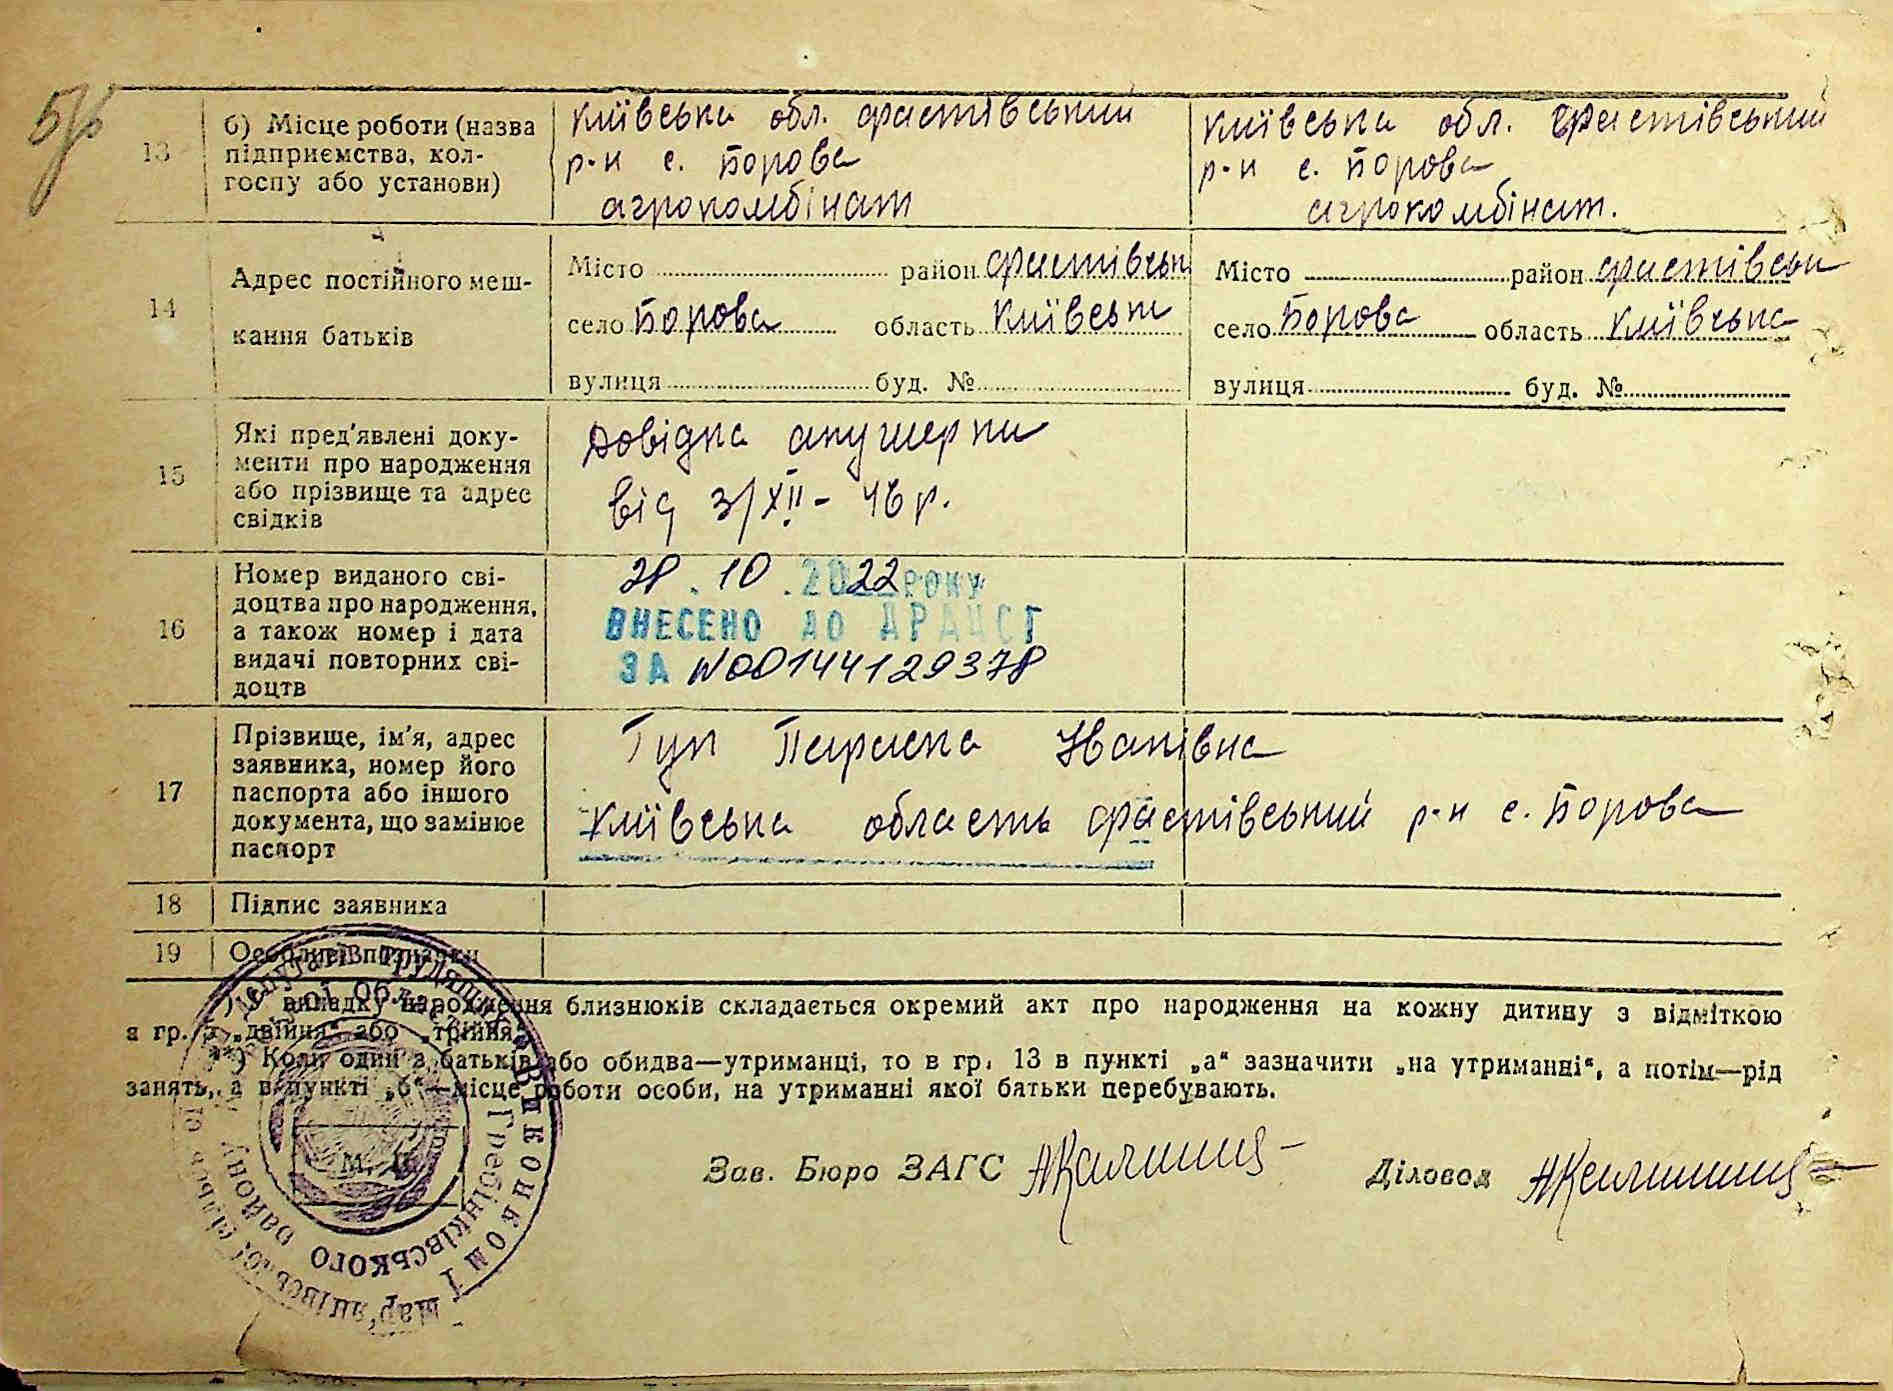 13
б) Місце роботи (назва
підприємства, кол-
госпу або установи)
Київська обл. Фастівський
р-н с. Борова
агрокомбінат
Київська обл. Фастівський
р-н с. Борова
агрокомбінат.
14
Адрес постійного меш-
кання батьків
Місто район Фастівськ
село Борова область Київськ
вулиця буд. №
Місто район Фастівськ
село Борова область Київська
вулиця буд. №
15
Які пред'явлені доку-
менти про народження
або прізвище та адрес
свідків
Довідка акушерки
від 3/XII - 46 р.
16
Номер виданого сві-
доцтва про народження,
а також номер і дата
видачі повторних сві-
доцтв
28.10.2022 РОКУ
ВНЕСЕНО ДО ДРАЦСГ
ЗА №00144129378
17
Прізвище, ім'я, адрес
заявника, номер його
паспорта або іншого
документа, що замінює
паспорт
Гук Параска Іванівна
Київська область Фастівський р-н с. Борова
18
Підпис заявника
19
Особливі позначки
*) У випадку народження близнюків складається окремий акт про народження на кожну дитину з відміткою
в гр. 5 „двійня" або „трійня".
**) Коли один з батьків або обидва—утриманці, то в гр. 13 в пункті „а" зазначити „на утриманні", а потім—рід
занять, а в пункті „б"—місце роботи особи, на утриманні якої батьки перебувають.
М. П.
Зав. Бюро ЗАГС
Діловод
депутатів трудящих
Виконком
Мар'янівської сільської
Гребінківського району